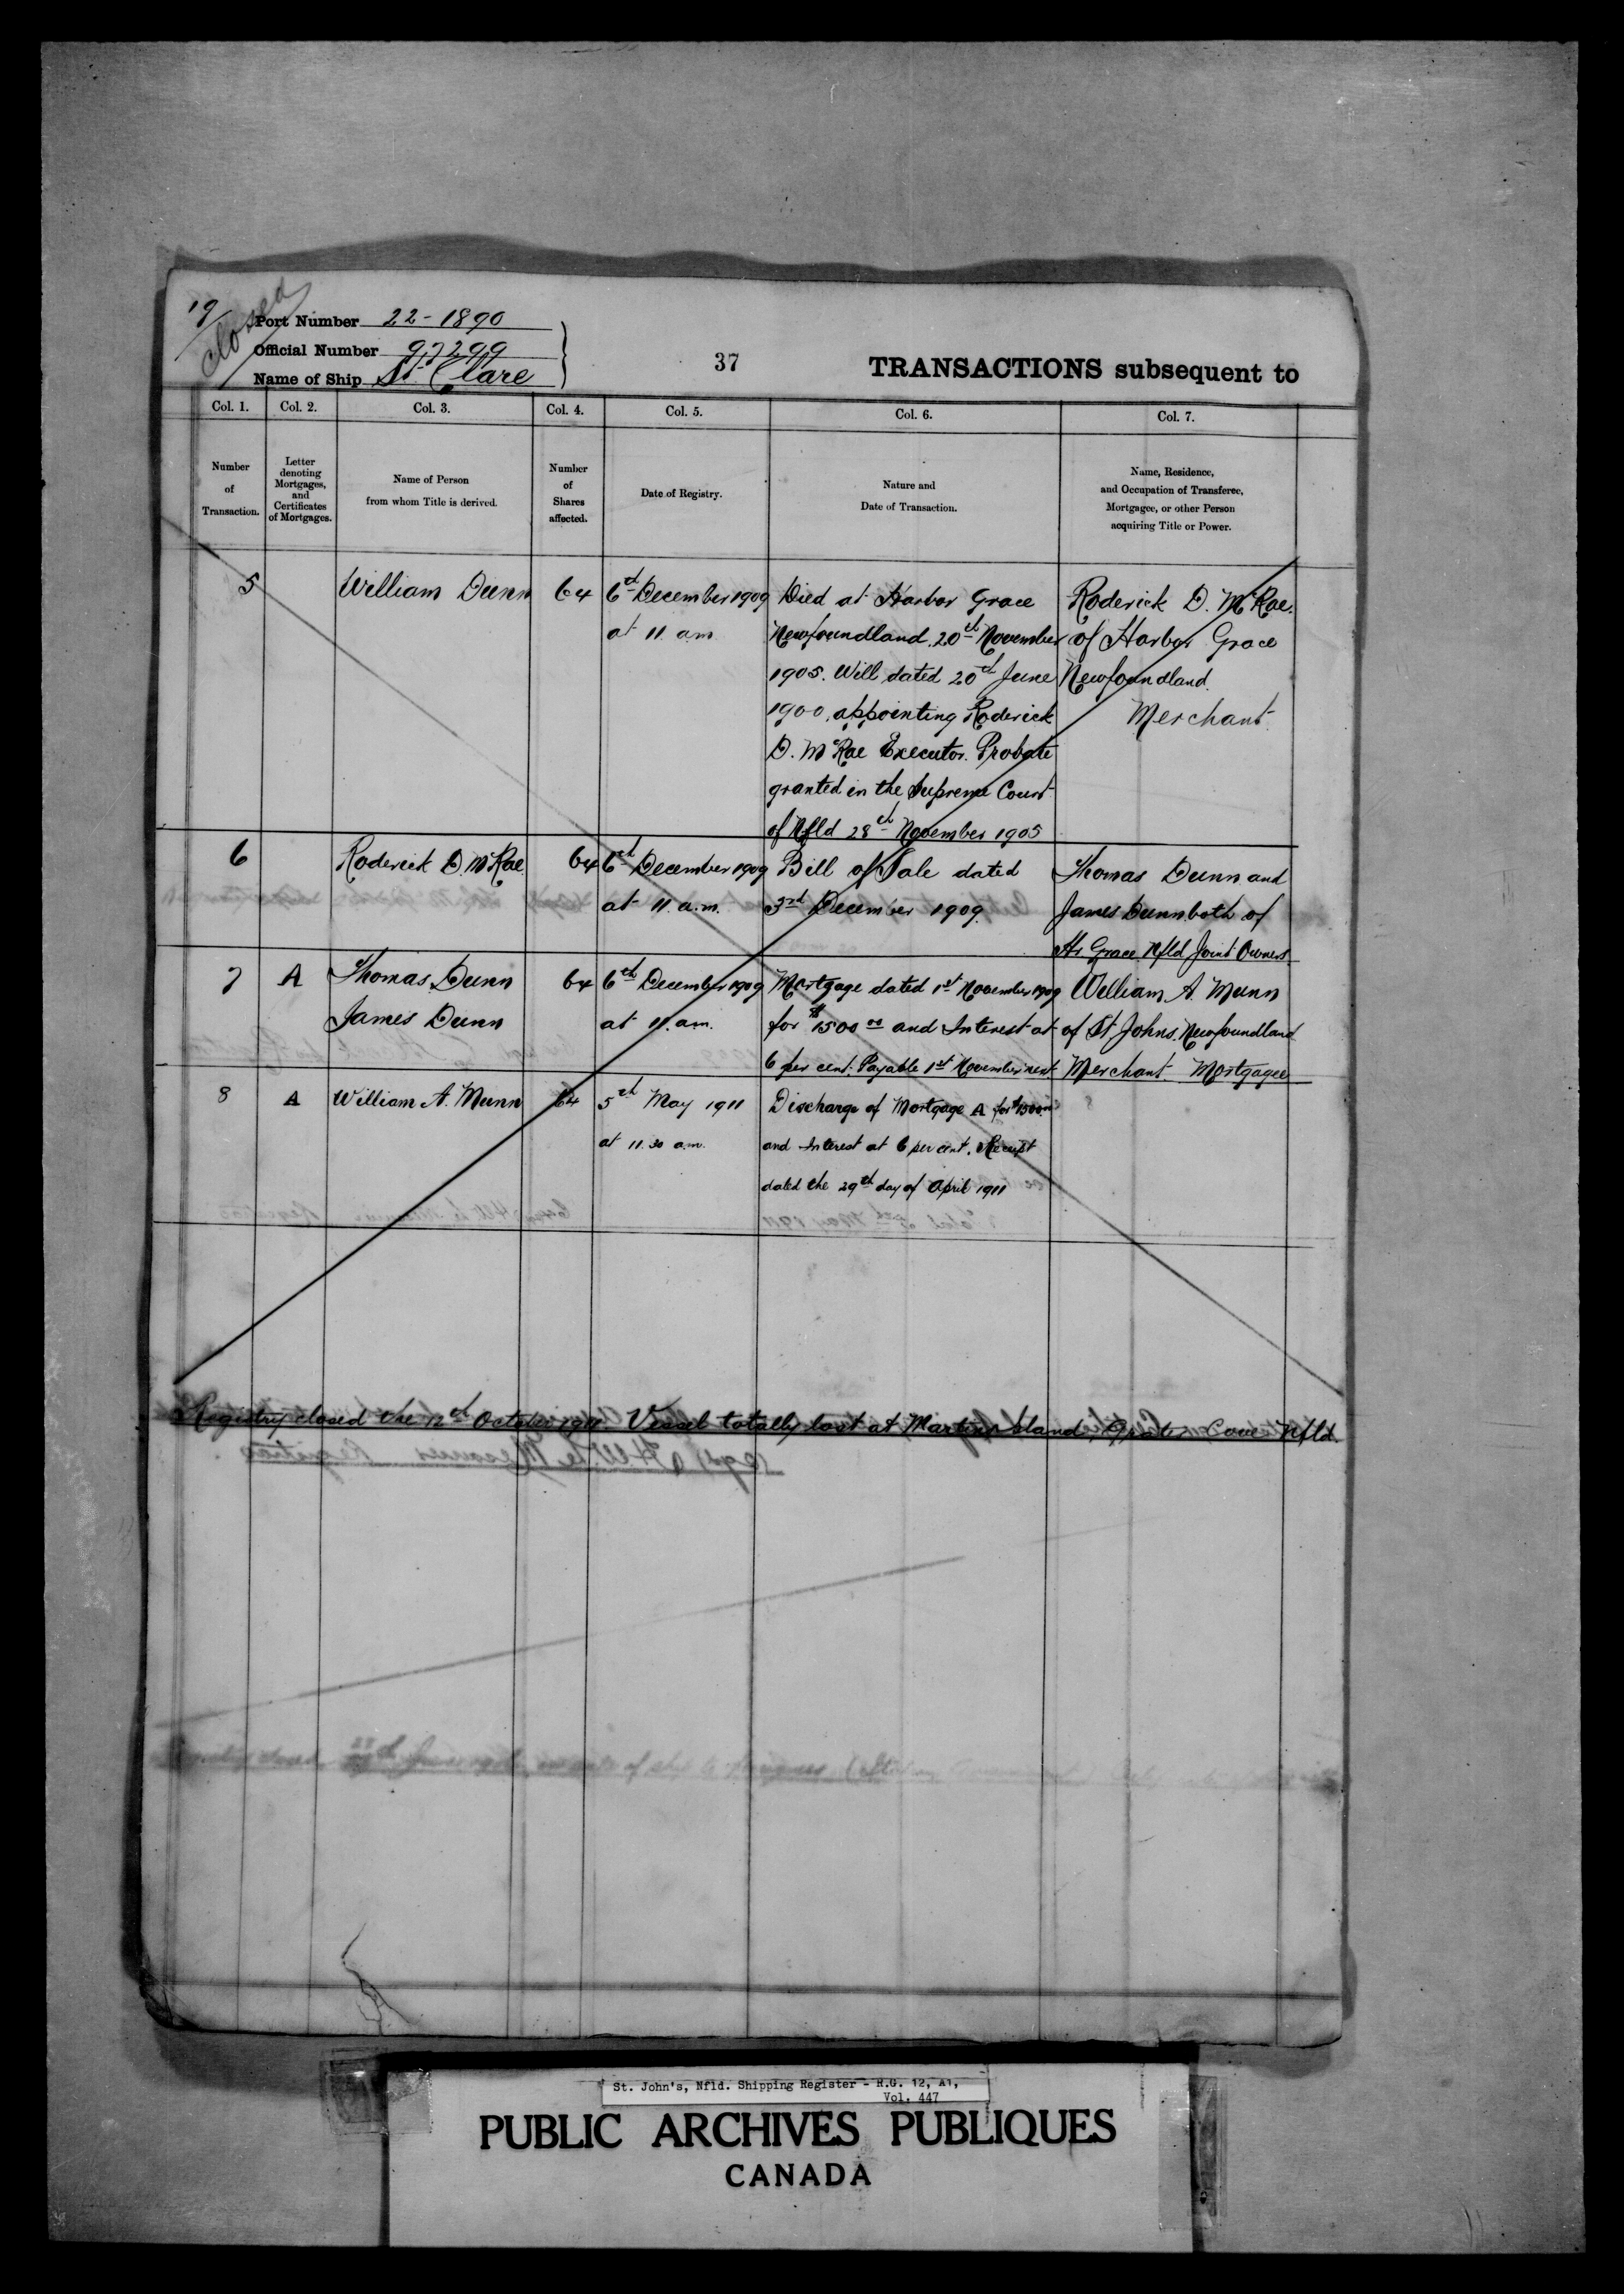 19
closed
Port Number 22-1890
Official Number 97299
Name of Ship St. Clare
37
TRANSACTIONS subsequent to
Col. 1. Col. 2. Col. 3. Col. 4. Col. 5. Col. 6. Col. 7.
Number of Transaction.
Letter denoting Mortgages, and Certificates of Mortgages.
Name of Person from whom Title is derived.
Number of Shares affected.
Date of Registry.
Nature and Date of Transaction.
Name, Residence, and Occupation of Transferee, Mortgagee, or other Person acquiring Title or Power.
5 William Dunn 64 6th December 1909 Died at Harbor Grace Roderick D. McRae.
at 11 a.m. Newfoundland 20th November of Harbor Grace
1905. Will dated 20th June Newfoundland.
1900, appointing Roderick Merchant
D. McRae Executor. Probate
granted in the Supreme Court
of Nfld 28th November 1905
6 Roderick D. McRae 64 6th December 1909 Bill of Sale dated Thomas Dunn and
at 11. a.m. 3rd December 1909 James Dunn both of
Hr Grace Nfld Joint Owners
7 A Thomas Dunn 64 6th December 1909 Mortgage dated 1st November 1909 William A. Munn
James Dunn at 11. a.m. for $1500 00 and Interest at of St Johns. Newfoundland
6 per cent. Payable 1st November next Merchant Mortgagee
8 A William A. Munn 64 5th May 1911 Discharge of Mortgage A for $1500 00
at 11.30 a.m. and Interest at 6 per cent. Receipt
dated the 29th day of April 1911
Registry closed the 12th October 1911. Vessel totally lost at Martins Island, Cove Nfld.
St. John's, Nfld. Shipping Register - R.G. 12, A1,
Vol. 447
PUBLIC ARCHIVES PUBLIQUES
CANADA